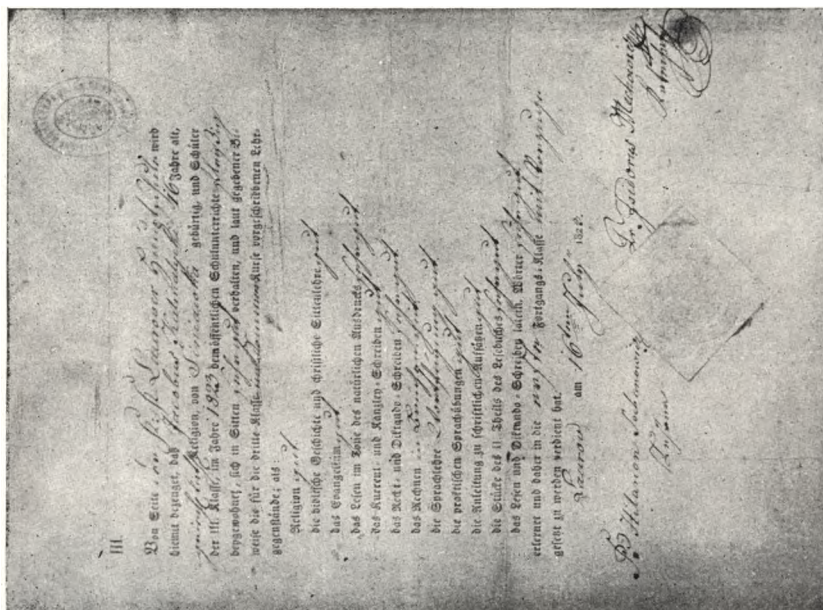 III.
Von Seite der Lawrower Hauptschule wird
hiemit bezeuget, daß Jacobus 16 Jahre alt,
Religion, von gebürtig, und Schüler
der III. Klasse, im Jahre 1823 dem öffentlichen Schulunterrichte fleißig
beygewohnt, sich in Sitten sehr gut verhalten, und laut gegebener Be-
weise die für die dritte Klasse im Kurse vorgeschriebenen Lehr-
gegenstände; als:
Religion gut
die biblische Geschichte und christliche Sittenlehre gut
das Evangelium gut
das Lesen im Tone des natürlichen Ausdrucks sehr gut
das Kurrent- und Kanzley-Schreiben gut
das Recht- und Diktando-Schreiben sehr gut
das Rechnen in
die Sprachlehre gut
die praktischen Sprachübungen gut
die Anleitung zu schriftlichen Aufsätzen gut
die Stücke des II. Theils des Lesebuches sehr gut
das Lesen und Diktando-Schreiben latein. Wörter sehr gut
erlernet und daher in die erste Fortgangs-Klasse mit Vorzug
gesetzt zu werden verdient hat.
Lawrow am 16ten July 182
Pr. Isidorus
Pr. Hilarion